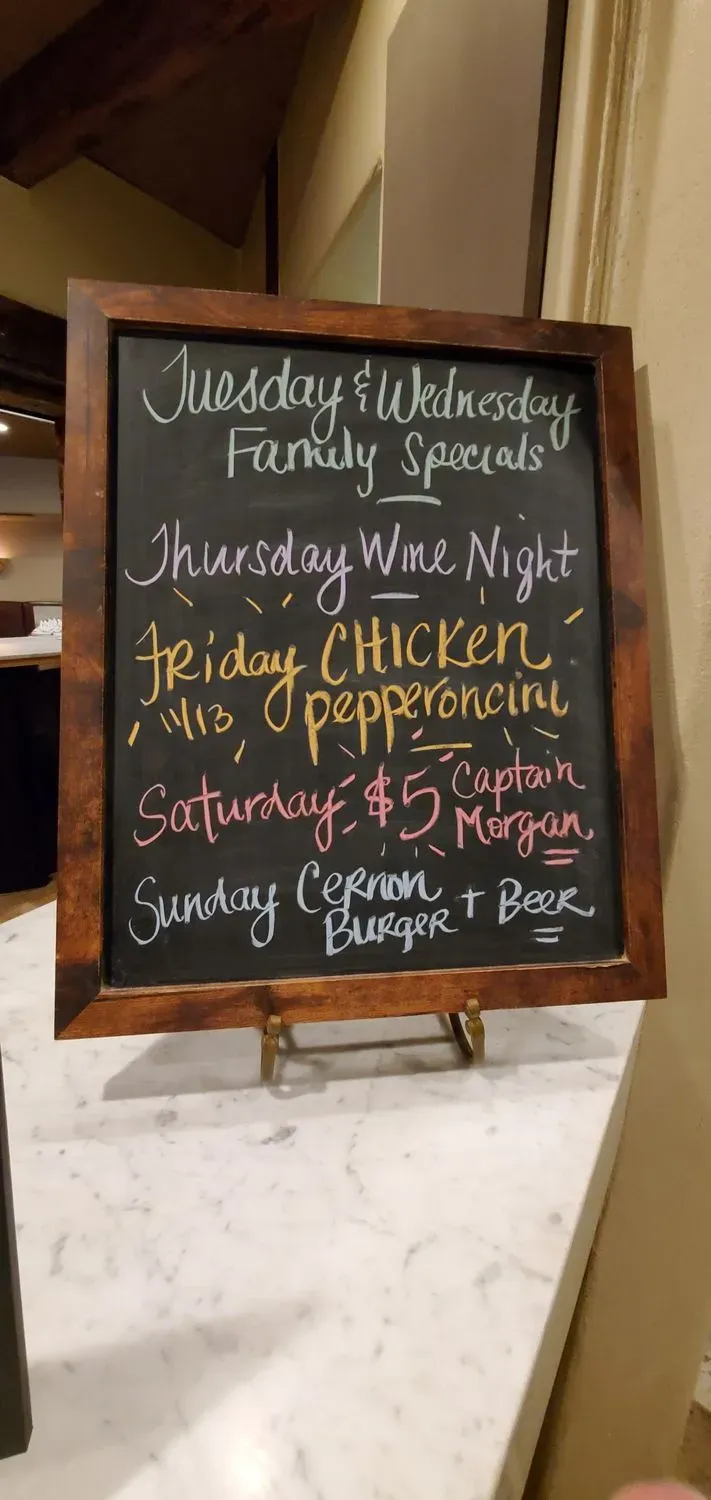 Tuesday & Wednesday
Family Specials
Thursday Wine Night
Friday CHICKEN
11/13 pepperoncini
Saturday $5 Captain
Morgan
Sunday Cernon
Burger + Beer